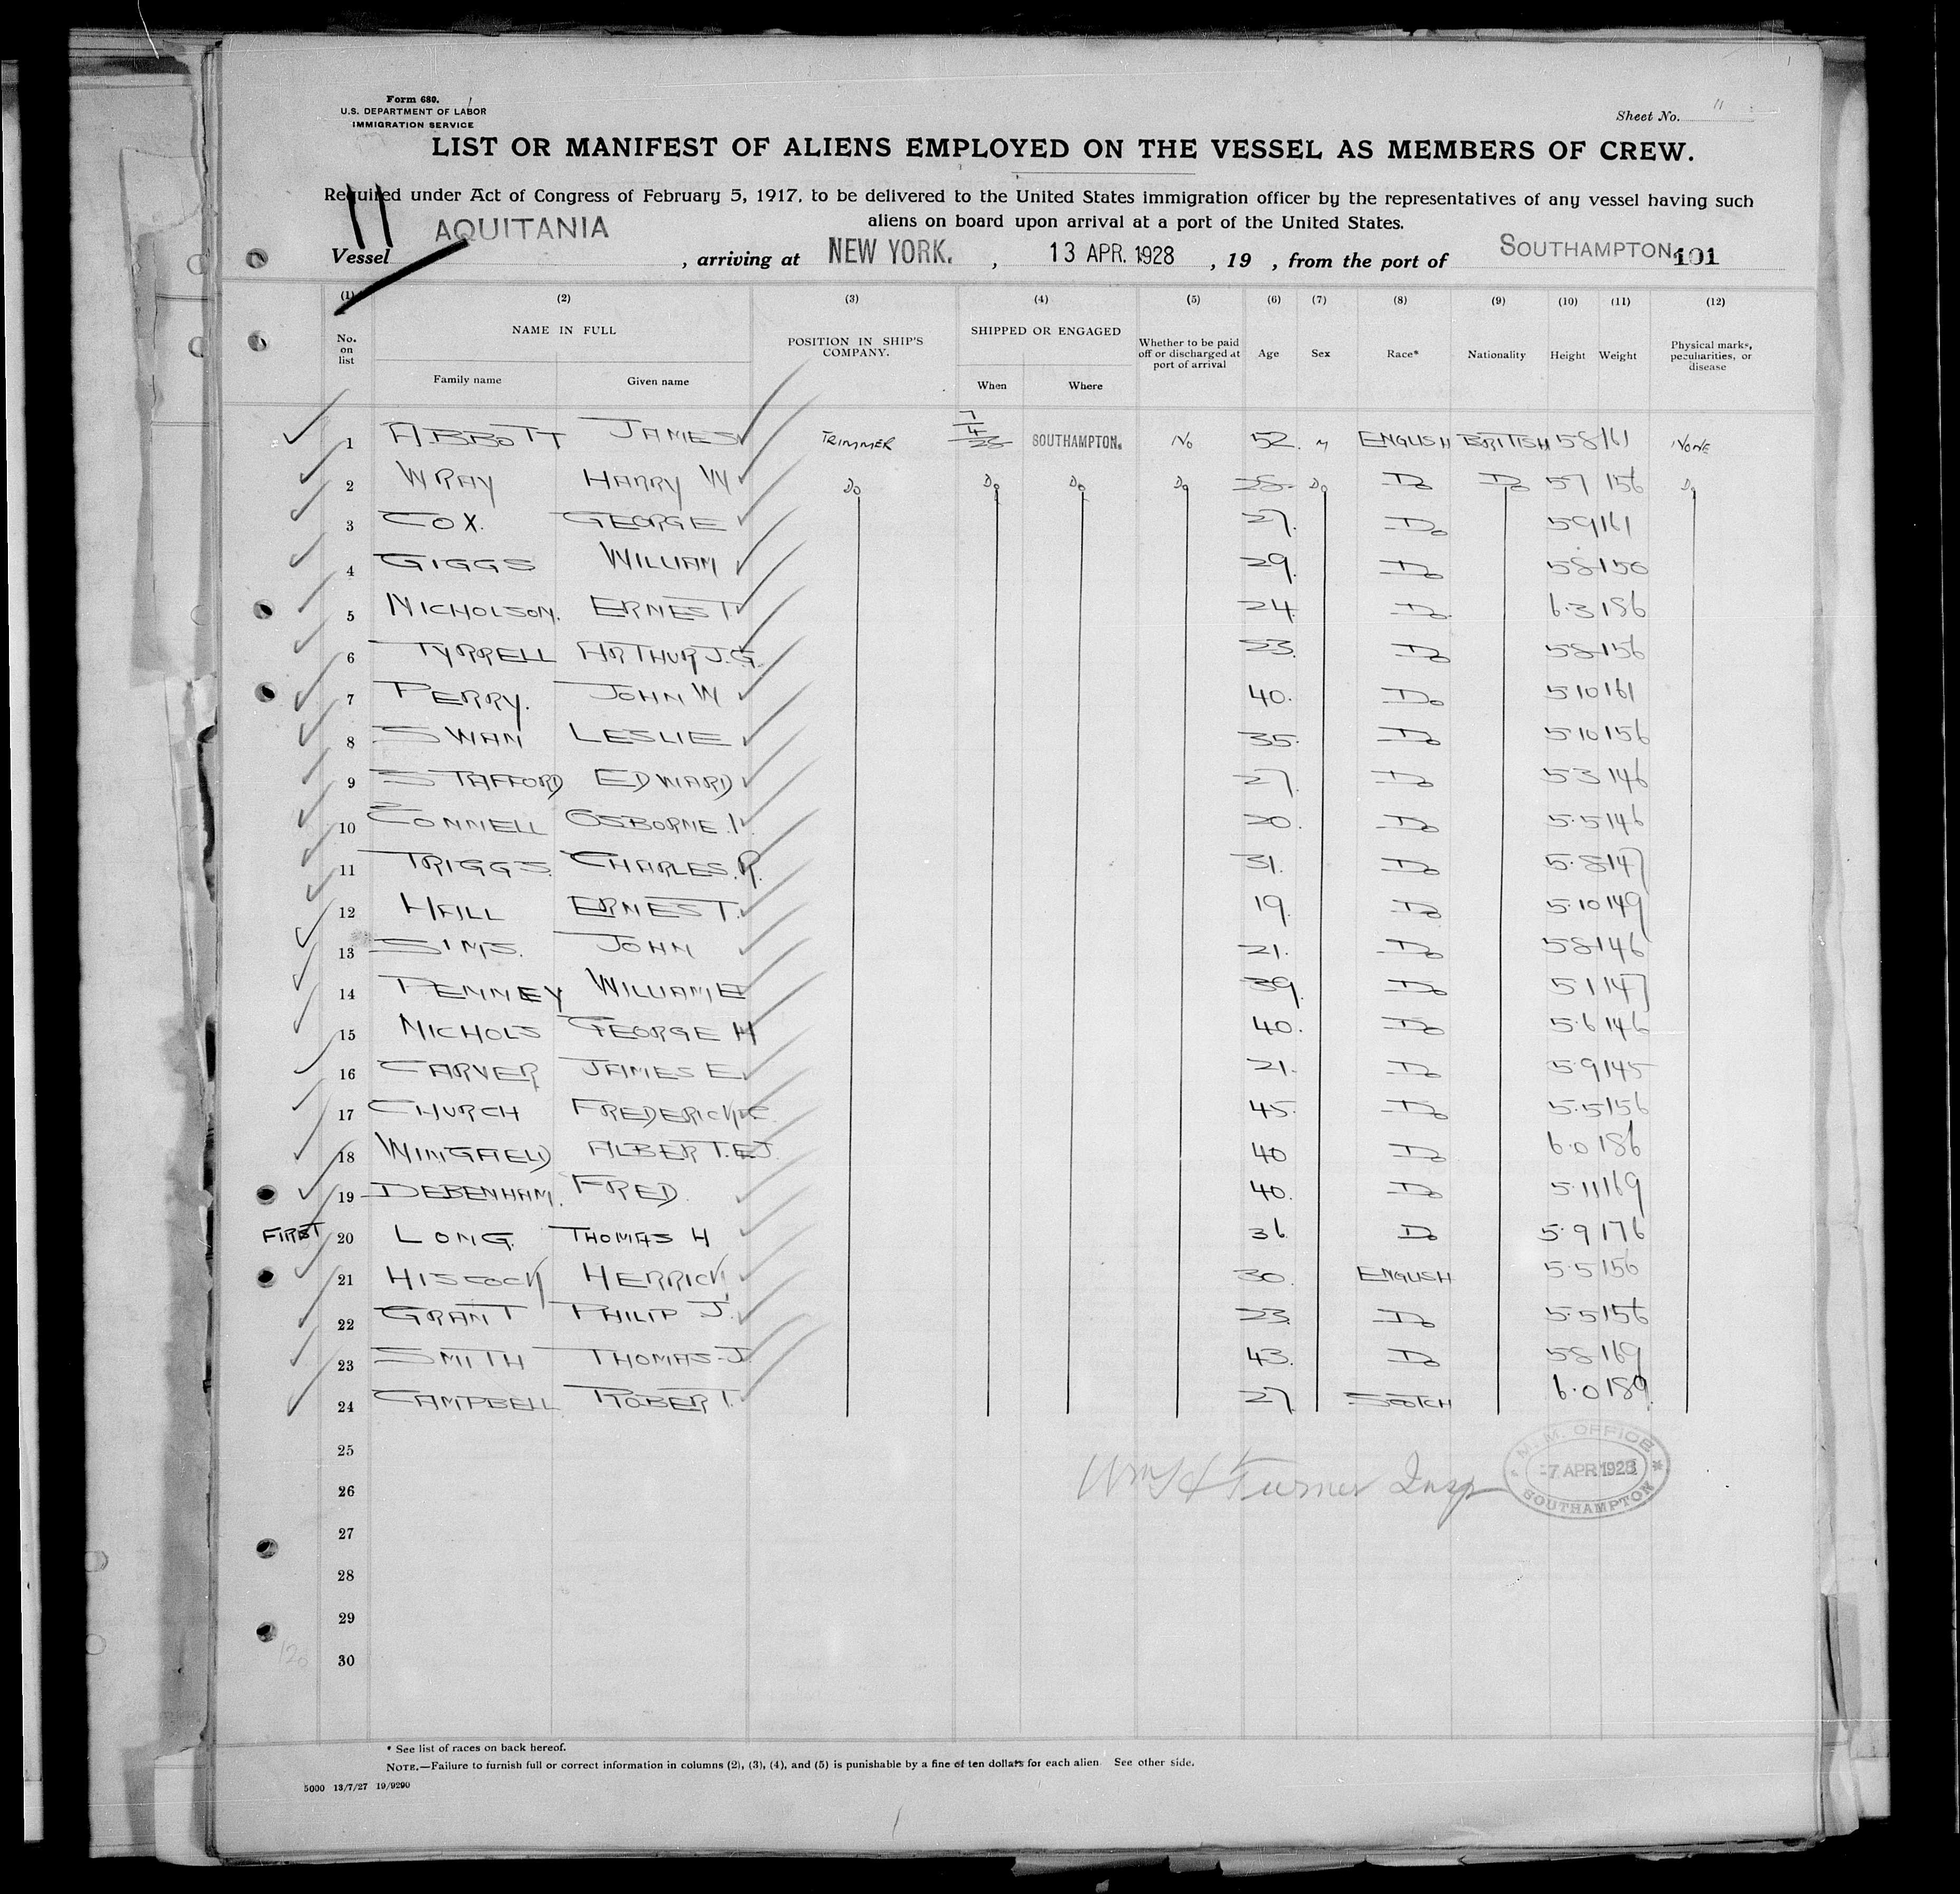 Form 680.
U.S. DEPARTMENT OF LABOR
IMMIGRATION SERVICE
Sheet No. 11
LIST OR MANIFEST OF ALIENS EMPLOYED ON THE VESSEL AS MEMBERS OF CREW.
Required under Act of Congress of February 5, 1917, to be delivered to the United States immigration officer by the representatives of any vessel having such
aliens on board upon arrival at a port of the United States.
11
Vessel AQUITANIA, arriving at NEW YORK., 13 APR. 1928, 19 , from the port of SOUTHAMPTON 101
(1) (2) (3) (4) (5) (6) (7) (8) (9) (10) (11) (12)
No. on list NAME IN FULL POSITION IN SHIP'S COMPANY. SHIPPED OR ENGAGED Whether to be paid off or discharged at port of arrival Age Sex Race* Nationality Height Weight Physical marks, peculiarities, or disease
Family name Given name When Where
1 ABBOTT JAMES TRIMMER 7/4/28 SOUTHAMPTON. No 52. M ENGLISH BRITISH 58 161 NONE
2 WRAY HARRY W Do Do Do Do 28. Do Do Do 57 156 Do
3 COX. GEORGE 27. Do 59 161
4 GIGGS WILLIAM 29. Do 58 150
5 NICHOLSON. ERNEST 24 Do 6.3 186
6 TYRRELL ARTHUR J.G. 23. Do 58 156
7 PERRY. JOHN W 40. Do 510 161
8 SWAN LESLIE 35. Do 510 156
9 STAFFORD EDWARD 27. Do 53 146
10 CONNELL OSBORNE. 20. Do 5.5 146
11 TRIGGS. CHARLES. R. 31. Do 5.8 147
12 HAILL ERNEST. 19. Do 5.10 149
13 SIMS. JOHN 21. Do 58 146
14 PENNEY WILLIAM E 39. Do 51 147
15 NICHOLS GEORGE H 40. Do 5.6 146
16 CARVER JAMES E. 21. Do 5.9 145
17 CHURCH FREDERICK C 45. Do 5.5 156
18 WINGFIELD ALBERT. E.J. 40 Do 6.0 186
19 DEBENHAM. FRED. 40. Do 5.11 169
FIRST 20 LONG. THOMAS H 36 Do 5.9 176
21 HISCOCK HERRICK 30. ENGLISH 5.5 156
22 GRANT PHILIP J. 23. Do 5.5 156
23 SMITH THOMAS-J 43. Do 58 169
24 CAMPBELL ROBERT. 27. SCOTCH 6.0 189
25
26 Wm H Turner Insp
M.M. OFFICE
-7 APR 1928
SOUTHAMPTON
27
28
29
120
30
* See list of races on back hereof.
NOTE.—Failure to furnish full or correct information in columns (2), (3), (4), and (5) is punishable by a fine of ten dollars for each alien. See other side.
5000 13/7/27 19/9290